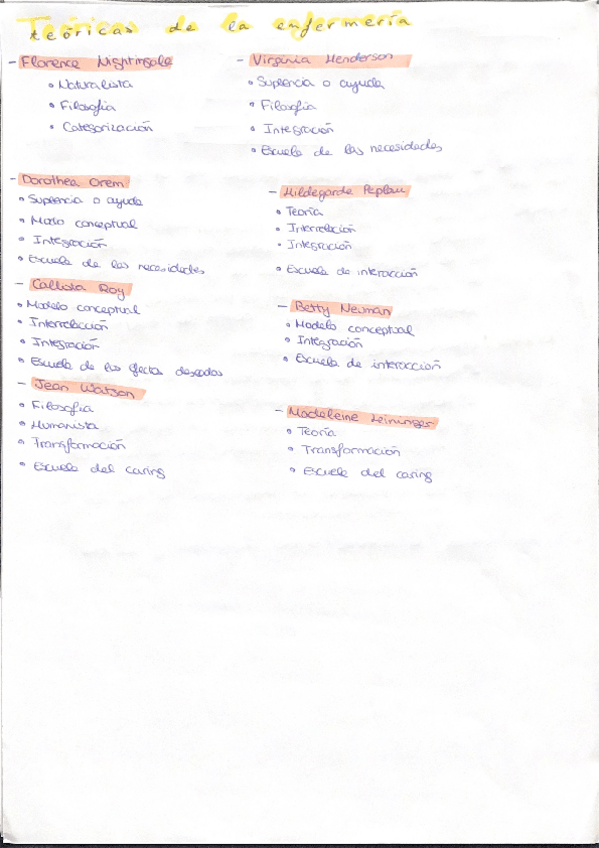 Teóricas de la enfermería
- Florence Nightingale
• Naturalista
• Filosofía
• Categorización
- Virginia Henderson
• Suplencia o ayuda
• Filosofía
• Integración
• Escuela de las necesidades
- Dorothea Orem
• Suplencia o ayuda
• Modlo conceptual
• Integración
• Escuela de las necesidades
- Hildegarde Peplau
• Teoría
• Interrelación
• Integración
• Escuela de interacción
- Callista Roy
• Modelo conceptual
• Interrelación
• Integración
• Escuela de los efectos deseados
- Betty Neuman
• Modelo conceptual
• Integración
• Escuela de interacción
- Jean Watson
• Filosofía
• Humanista
• Transformación
• Escuela del caring
- Madeleine Leininger
• Teoría
• Transformación
• Escuela del caring